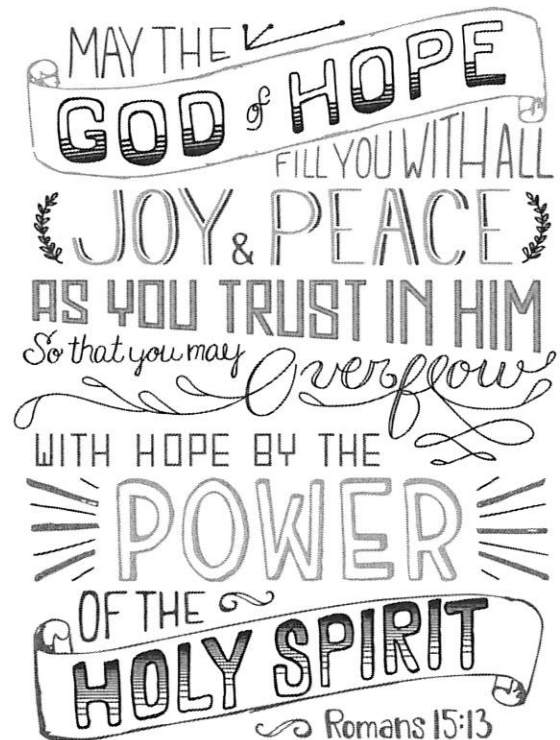 MAY THE
GOD of HOPE
FILL YOU WITH ALL
JOY & PEACE
AS YOU TRUST IN HIM
So that you may Overflow
WITH HOPE BY THE
POWER
OF THE
HOLY SPIRIT
Romans 15:13